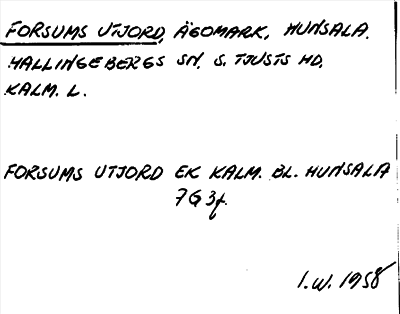 FORSUMS UTJORD, ÄGOMARK, HUNSALA.
HALLINGEBERGS SN. S. TJUSTS HD.
KALM. L.
FORSUMS UTJORD EK KALM. BL. HUNSALA
7G 3f.
I.W. 1958